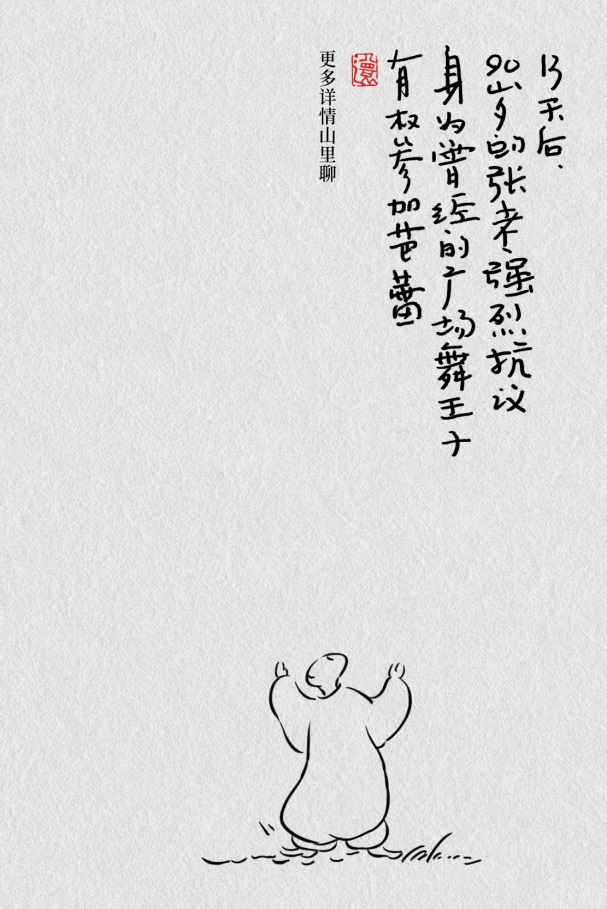 13天后.
90岁的张老强烈抗议
身为曾经的广场舞王子
有权参加芭蕾
更多详情山里聊